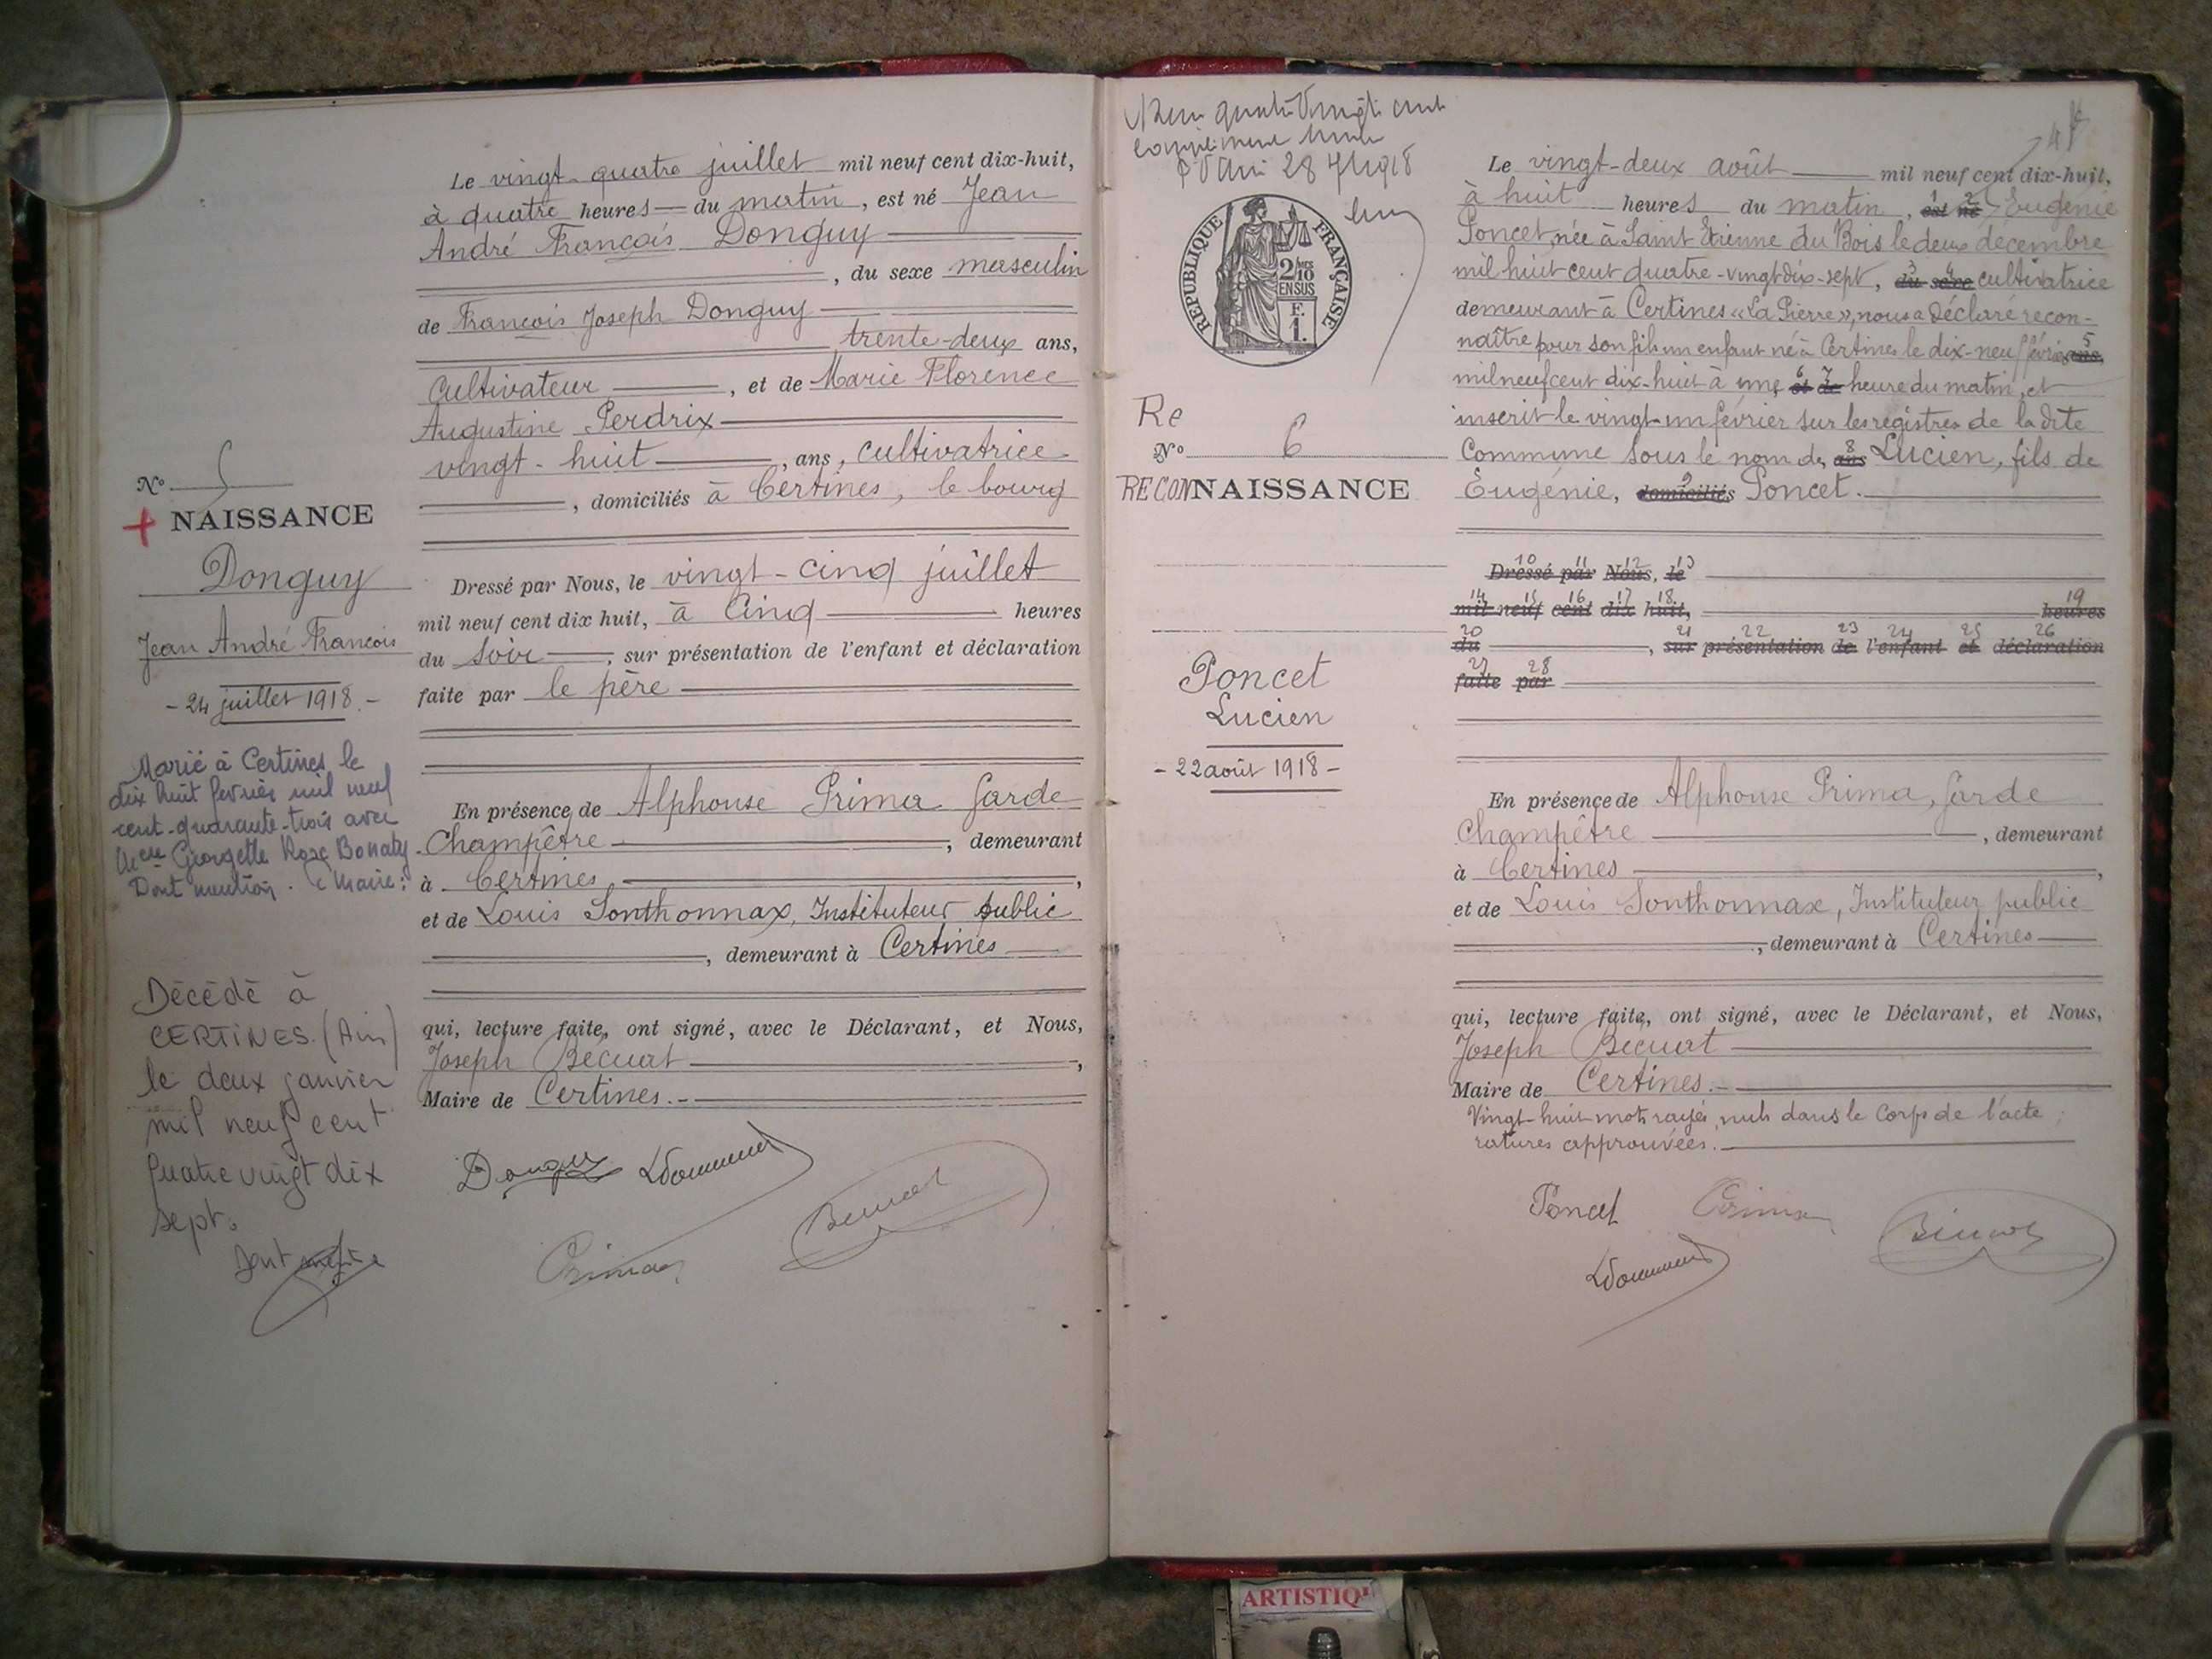 N° 5
+ NAISSANCE
Donguy
Jean André François
- 24 juillet 1918. -
Marié à Certines le
dix huit février mil neuf
cent quarante-trois avec
Georgette Rose Bonaty
Dont mention. Le Maire:
Décédé à
CERTINES (Ain)
le deux janvier
mil neuf cent
quatre vingt dix
sept.
Dont
Le vingt-quatre juillet mil neuf cent dix-huit,
à quatre heures du matin, est né Jean
André François Donguy
, du sexe masculin
de François Joseph Donguy
trente-deux ans,
Cultivateur, et de Marie Florence
Augustine Perdrix
vingt-huit, ans, cultivatrice
, domiciliés à Certines, le bourg
Dressé par Nous, le vingt-cinq juillet
mil neuf cent dix huit, à cinq heures
du soir, sur présentation de l'enfant et déclaration
faite par le père
En présence de Alphonse Prima Garde
Champêtre, demeurant
à Certines,
et de Louis Sonthonnax, Instituteur public
, demeurant à Certines
qui, lecture faite, ont signé, avec le Déclarant, et Nous,
Joseph Becuat,
Maire de Certines.-
Donguy
Prima Becuat
28 7bre 1918
RÉPUBLIQUE FRANÇAISE
2/10 MES
EN SUS
F.
1.
Re
N° 6
RECONNAISSANCE
Poncet
Lucien
- 22 août 1918 -
Le vingt-deux août mil neuf cent dix-huit,
à huit heures du matin, 1 est 2 né Eugénie
Poncet, née à Saint Etienne du Bois le deux décembre
mil huit cent quatre-vingt dix-sept, 3 du 4 sexe cultivatrice
demeurant à Certines «La Pierre», nous a déclaré recon-
naître pour son fils un enfant né à Certines le dix-neuf février 5 ans,
mil neuf cent dix-huit à une 6 et 7 de heure du matin, et
inscrit le vingt-un février sur les registres de la dite
Commune sous le nom de, 8 ans Lucien, fils de
Eugénie, 9 domiciliés Poncet.
10 Dressé 11 par 12 Nous, 13 le
14 mil 15 neuf 16 cent 17 dix 18 huit, 19 heures
20 du, 21 sur 22 présentation 23 de 24 l'enfant 25 et 26 déclaration
27 faite 28 par
En présence de Alphonse Prima, Garde
Champêtre, demeurant
à Certines,
et de Louis Sonthonnax, Instituteur public
, demeurant à Certines
qui, lecture faite, ont signé, avec le Déclarant, et Nous,
Joseph Becuat
Maire de Certines.-
Vingt-huit mots rayés nuls dans le corps de l'acte;
ratures approuvées.
Poncet Prima Becuat
ARTISTIQ